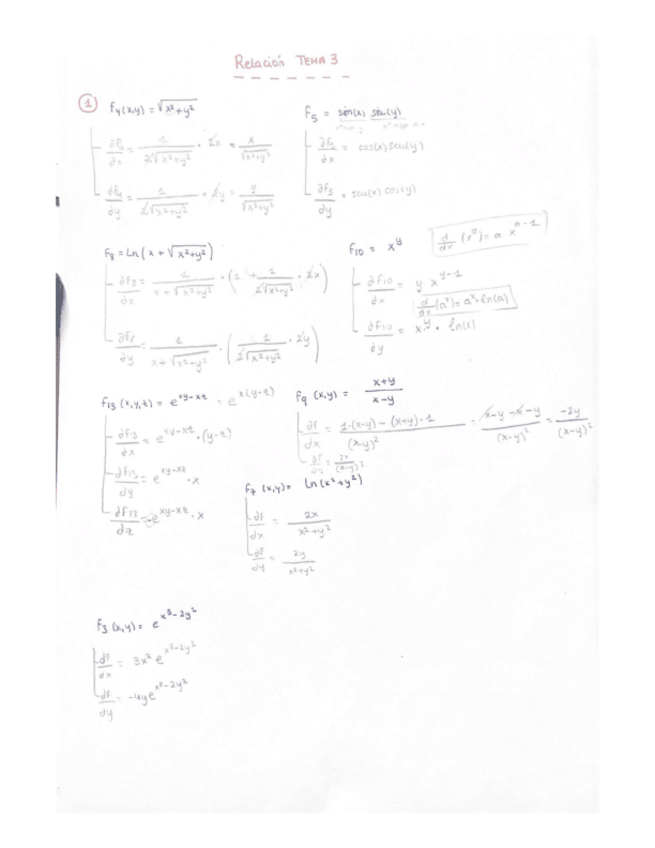 Relación TEMA 3
① F₄(x,y) = √x²+y²
∂F₄/∂x = 1/2√x²+y² · 2x = x/√x²+y²
∂F₄/∂y = 1/2√x²+y² · 2y = y/√x²+y²
F₅ = sen(x) sen(y)
∂F₅/∂x = cos(x) sen(y)
∂F₅/∂y = sen(x) cos(y)
F₈ = Ln(x + √x²+y²)
∂F₈/∂x = 1/x+√x²+y² · (1 + 1/2√x²+y² · 2x)
∂F₈/∂y = 1/x+√x²+y² · (1/2√x²+y² · 2y)
F₁₀ = x^y
d/dx (x^a) = a x^a-1
∂F₁₀/∂x = y x^y-1
d/dx (a^x) = a^x · ln(a)
∂F₁₀/∂y = x^y · ln(x)
F₁₃ (x,y,z) = e^xy-xz = e^x(y-z)
∂F₁₃/∂x = e^xy-xz · (y-z)
∂F₁₃/∂y = e^xy-xz · x
∂F₁₃/∂z = -e^xy-xz · x
F₉ (x,y) = x+y/x-y
∂F/∂x = 1·(x-y) - (x+y)·1/(x-y)² = x-y-x-y/(x-y)² = -2y/(x-y)²
∂F/∂y = 2x/(x-y)²
F₇ (x,y) = Ln(x²+y²)
∂F/∂x = 2x/x²+y²
∂F/∂y = 2y/x²+y²
F₃ (x,y) = e^x³-2y²
∂F/∂x = 3x² e^x³-2y²
∂F/∂y = -4y e^x³-2y²